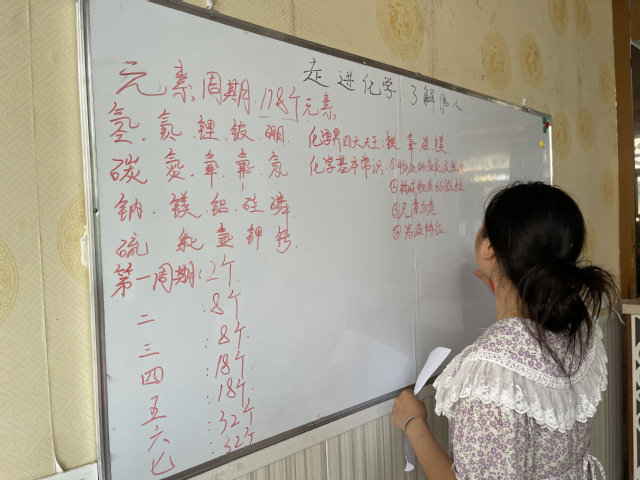 走进化学.了解伟人
元素周期.118个元素.
氢.氦.锂.铍.硼.
碳 氮.氧.氟.氖
钠.镁.铝.硅.磷
硫 氯 氩 钾 钙.
第一周期:2个
二:8个
三:8个
四:18个
五:18个
六:32个
七:32个
化学界四大天王:
化学基本常识:①物质的变化及性质
②构成物质的微粒
③元素
④